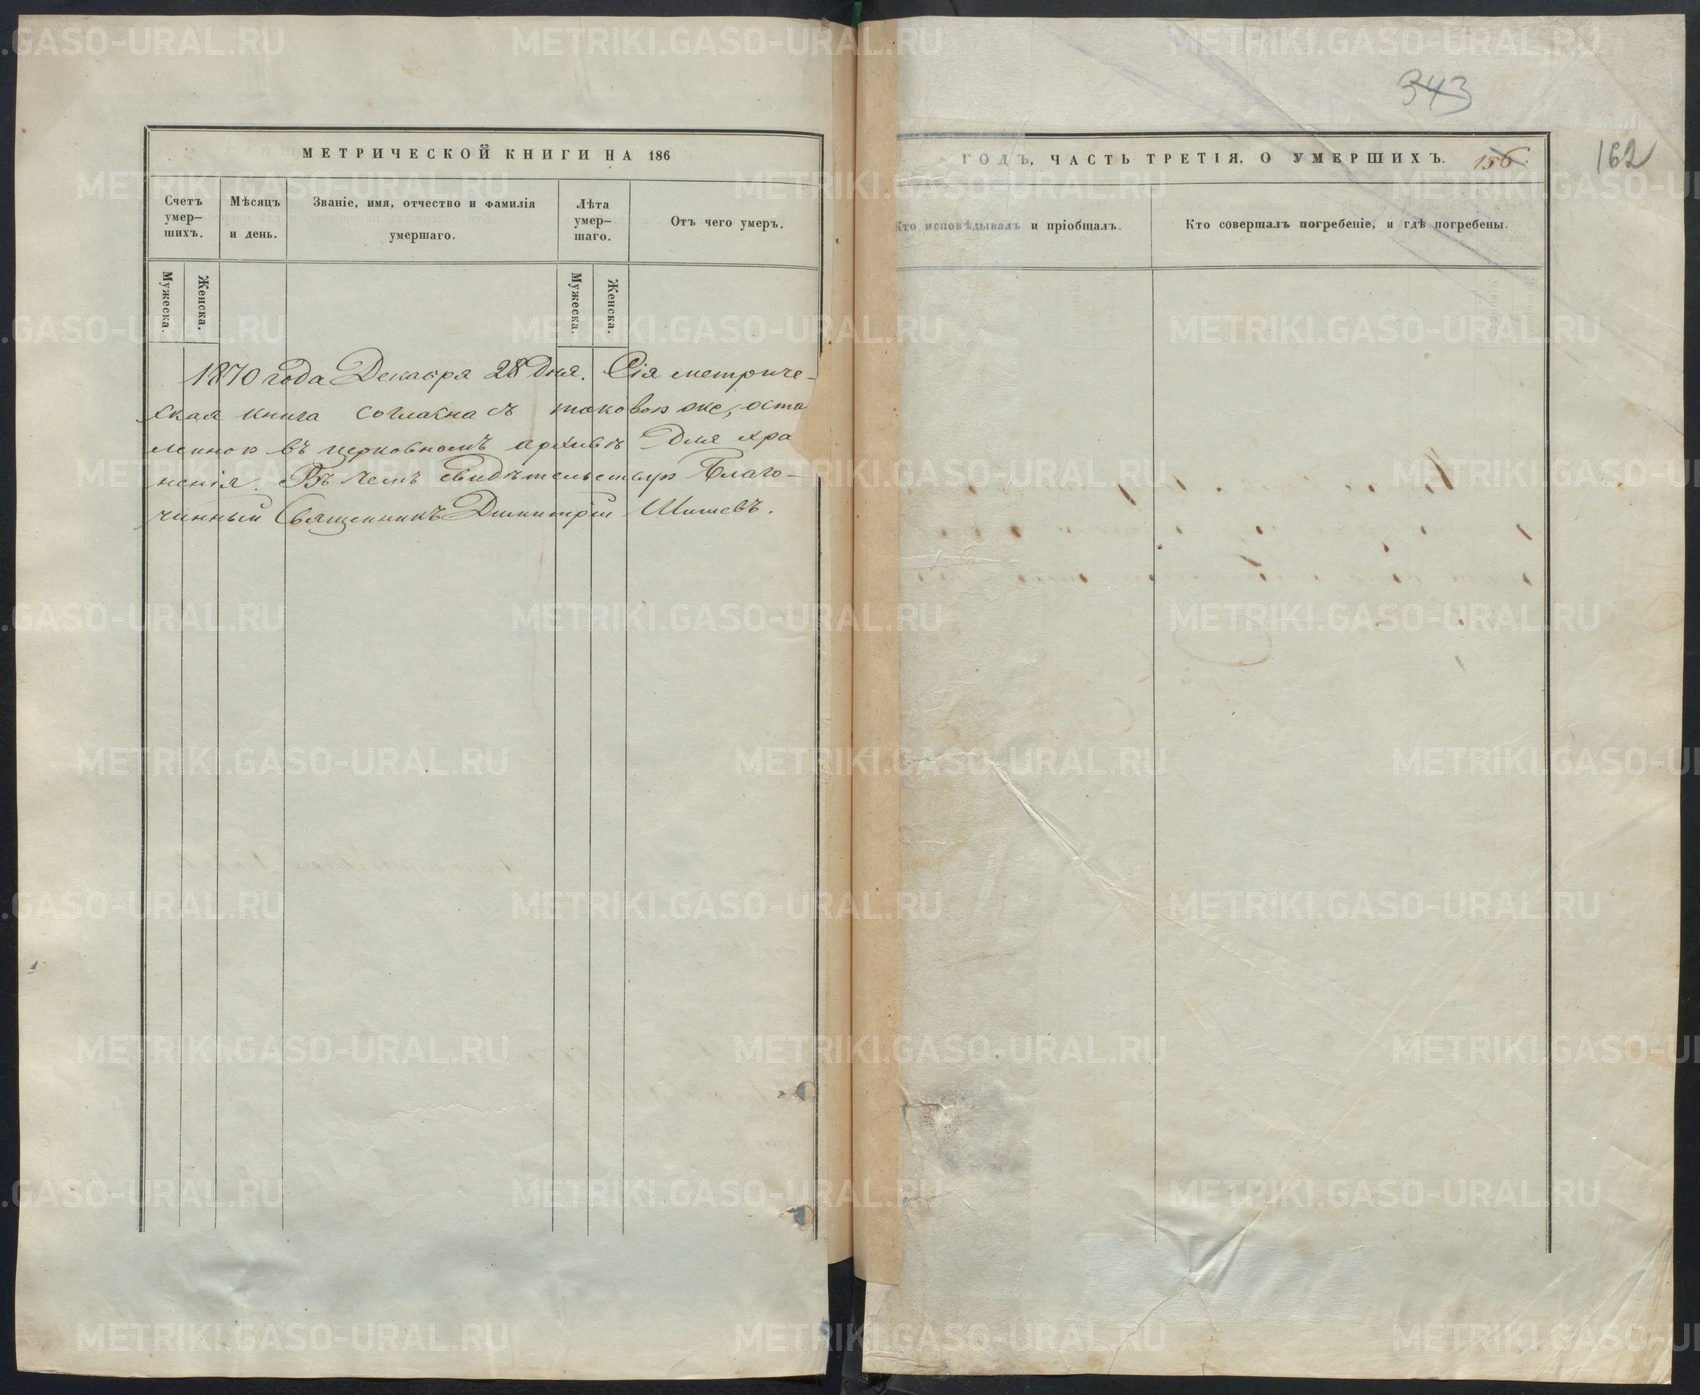 343
МЕТРИЧЕСКОЙ КНИГИ НА 186
ГОДЪ, ЧАСТЬ ТРЕТІЯ, О УМЕРШИХЪ.
156.
162
Счетъ умер— шихъ.
Мѣсяцъ и день.
Званіе, имя, отчество и фамилія умершаго.
Лѣта умер— шаго.
Отъ чего умеръ.
Кто исповѣдывалъ и пріобщалъ.
Кто совершалъ погребеніе, и гдѣ погребены.
Мужеска.
Женска.
Мужеска.
Женска.
1870 года Декабря 28 дня. Сія метриче-
ская книга согласна съ таковою же, оста
ленною въ церковномъ архивѣ для хра
ненія. Въ чемъ свидѣтельствую Благо-
чинный Священникъ Димитрій Шишевъ.
METRIKI.GASO-URAL.RU